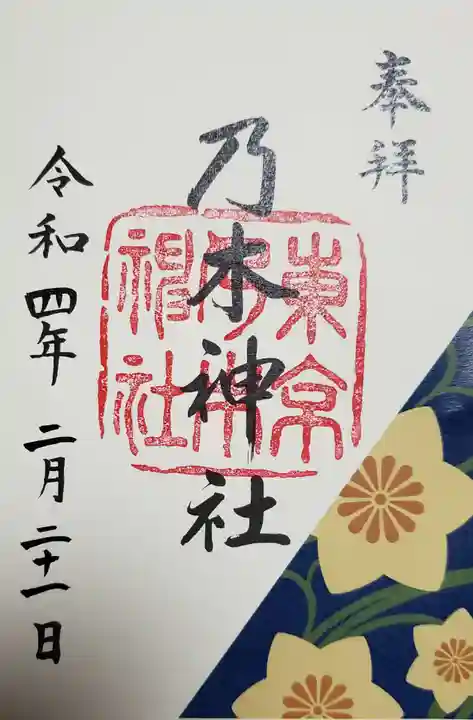 奉拝
乃木神社
東京乃木神社
令和四年二月二十一日